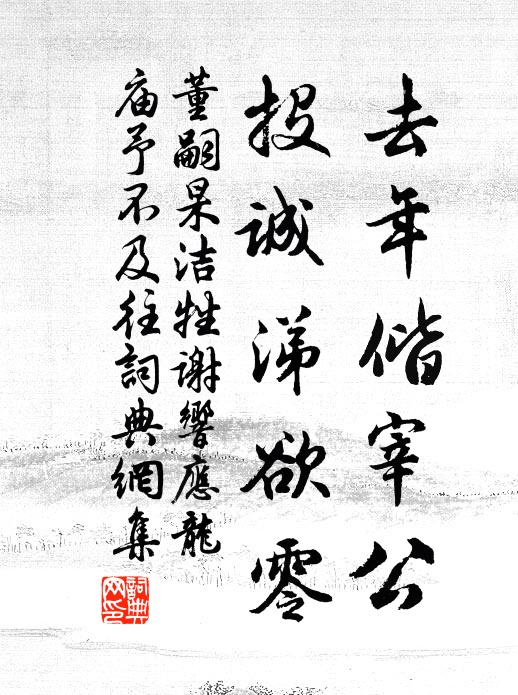 去年偕宰公
投誠涕欲零
董嗣杲洁牲谢響應龍
庙予不及往詞典網集
詞典網印